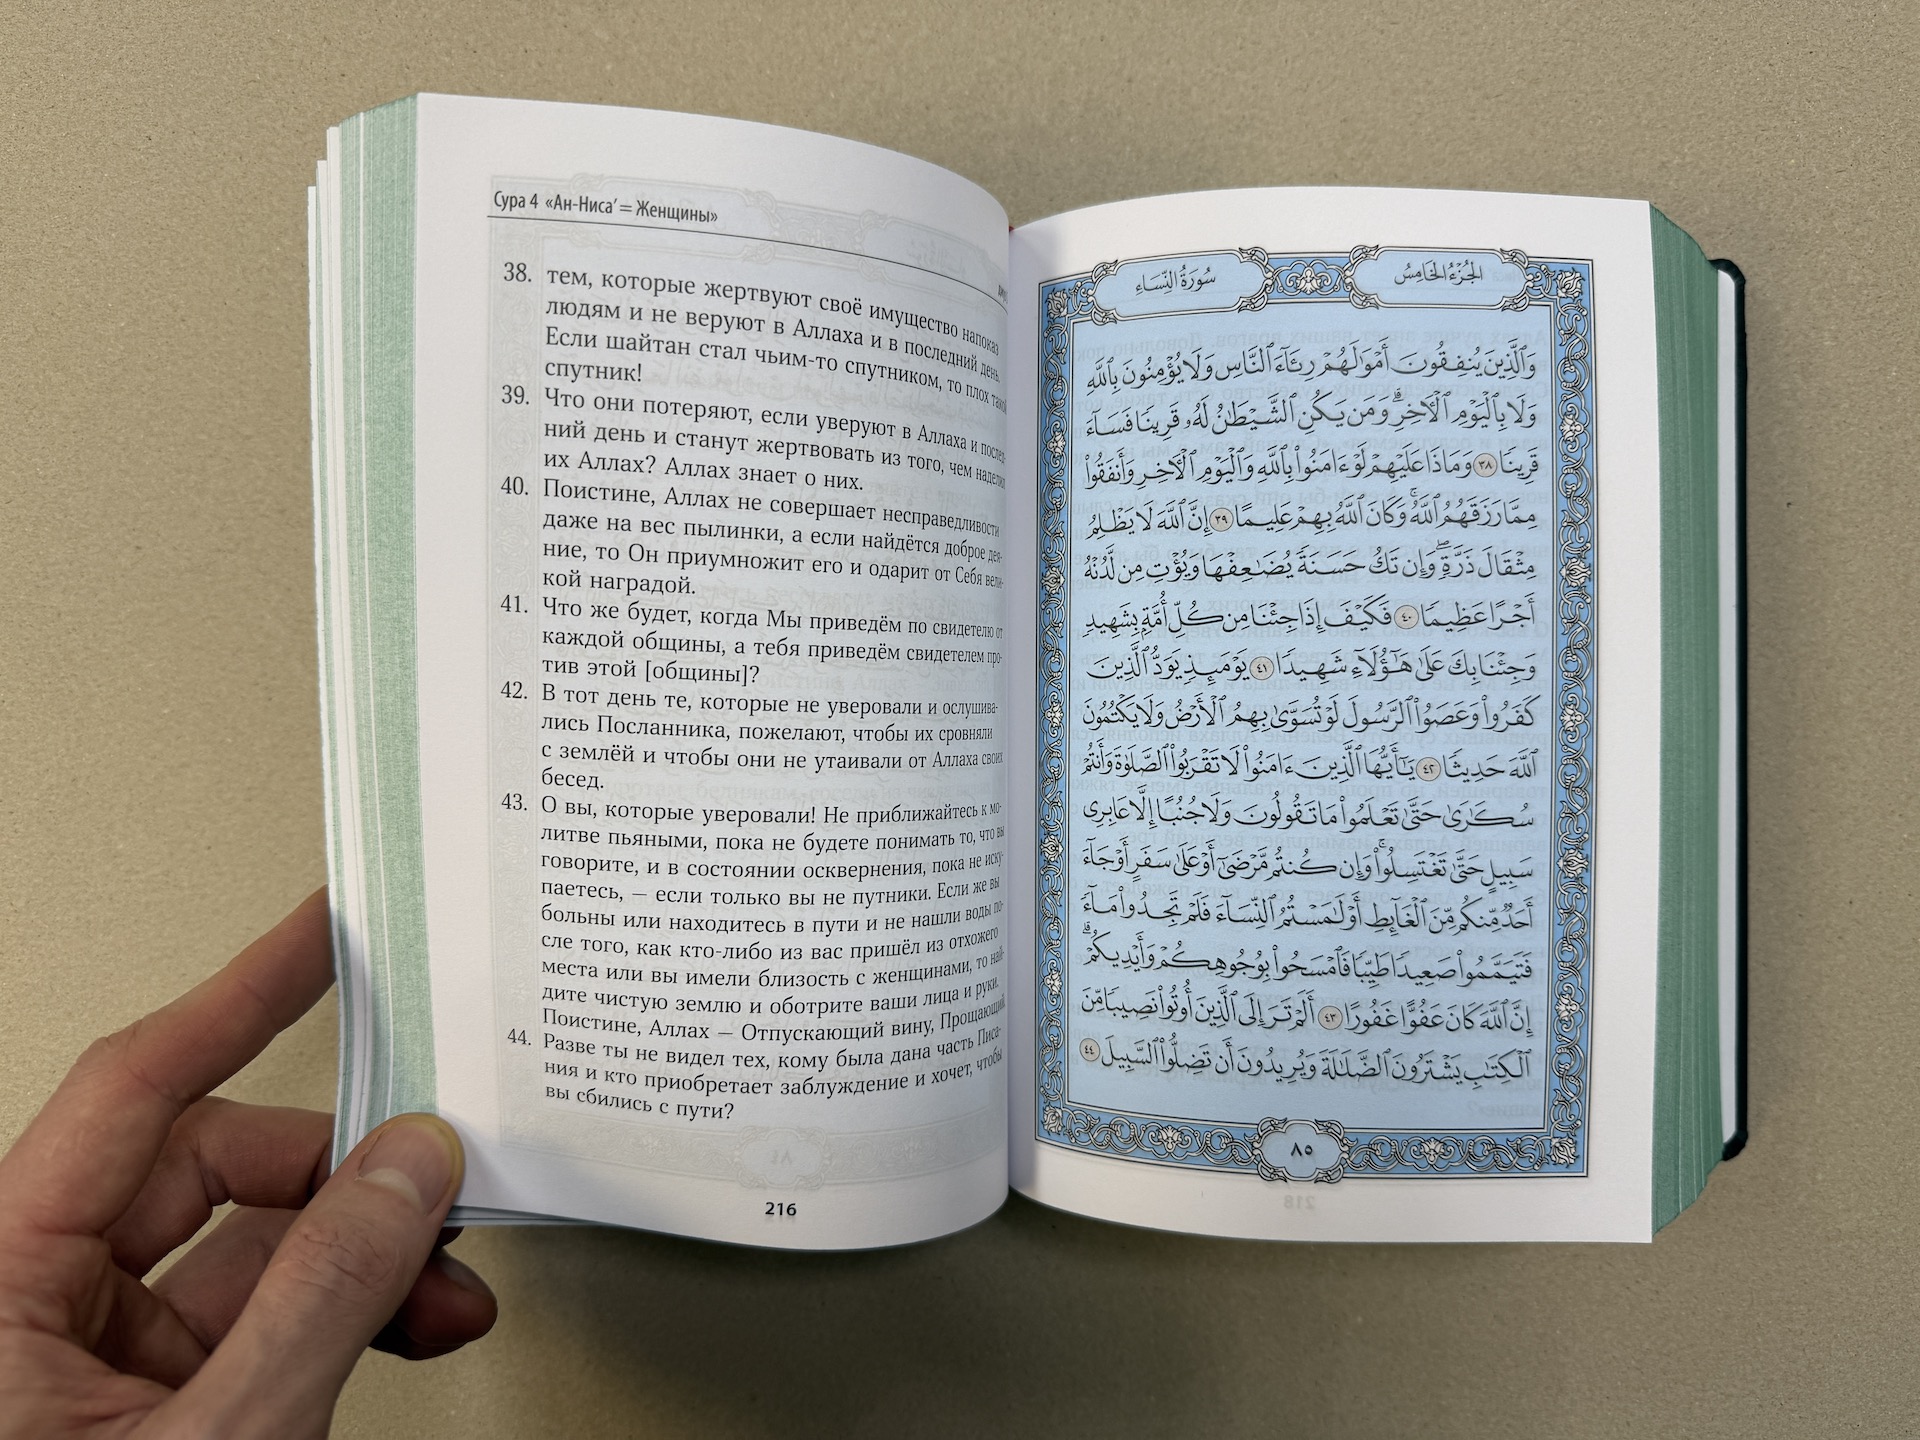 Сура 4 «Ан-Ниса’ = Женщины»
38. тем, которые жертвуют своё имущество напоказ
людям и не веруют в Аллаха и в последний день.
Если шайтан стал чьим-то спутником, то плох такой
спутник!
39. Что они потеряют, если уверуют в Аллаха и послед-
ний день и станут жертвовать из того, чем наделил
их Аллах? Аллах знает о них.
40. Поистине, Аллах не совершает несправедливости
даже на вес пылинки, а если найдётся доброе дея-
ние, то Он приумножит его и одарит от Себя вели-
кой наградой.
41. Что же будет, когда Мы приведём по свидетелю от
каждой общины, а тебя приведём свидетелем про-
тив этой [общины]?
42. В тот день те, которые не уверовали и ослушива-
лись Посланника, пожелают, чтобы их сровняли
с землёй и чтобы они не утаивали от Аллаха своих
бесед.
43. О вы, которые уверовали! Не приближайтесь к мо-
литве пьяными, пока не будете понимать то, что вы
говорите, и в состоянии осквернения, пока не иску-
паетесь, — если только вы не путники. Если же вы
больны или находитесь в пути и не нашли воды по-
сле того, как кто-либо из вас пришёл из отхожего
места или вы имели близость с женщинами, то най-
дите чистую землю и оботрите ваши лица и руки.
Поистине, Аллах — Отпускающий вину, Прощающий.
44. Разве ты не видел тех, кому была дана часть Писа-
ния и кто приобретает заблуждение и хочет, чтобы
вы сбились с пути?
216
الجُزْءُ الخَامِسُ
سُورَةُ النِّسَاءِ
وَٱلَّذِينَ يُنفِقُونَ أَمْوَٰلَهُمْ رِئَآءَ ٱلنَّاسِ وَلَا يُؤْمِنُونَ بِٱللَّهِ
وَلَا بِٱلْيَوْمِ ٱلْأَخِرِۗ وَمَن يَكُنِ ٱلشَّيْطَٰنُ لَهُۥ قَرِينًا فَسَآءَ
قَرِينًا ٣٨ وَمَاذَا عَلَيْهِمْ لَوْ ءَامَنُوا۟ بِٱللَّهِ وَٱلْيَوْمِ ٱلْأَخِرِ وَأَنفَقُوا۟
مِمَّا رَزَقَهُمُ ٱللَّهُۚ وَكَانَ ٱللَّهُ بِهِمْ عَلِيمًا ٣٩ إِنَّ ٱللَّهَ لَا يَظْلِمُ
مِثْقَالَ ذَرَّةٍۖ وَإِن تَكُ حَسَنَةً يُضَٰعِفْهَا وَيُؤْتِ مِن لَّدُنْهُ
أَجْرًا عَظِيمًا ٤٠ فَكَيْفَ إِذَا جِئْنَا مِن كُلِّ أُمَّةٍۭ بِشَهِيدٍ
وَجِئْنَا بِكَ عَلَىٰ هَٰٓؤُلَآءِ شَهِيدًا ٤١ يَوْمَئِذٍ يَوَدُّ ٱلَّذِينَ
كَفَرُوا۟ وَعَصَوُا۟ ٱلرَّسُولَ لَوْ تُسَوَّىٰ بِهِمُ ٱلْأَرْضُ وَلَا يَكْتُمُونَ
ٱللَّهَ حَدِيثًا ٤٢ يَٰٓأَيُّهَا ٱلَّذِينَ ءَامَنُوا۟ لَا تَقْرَبُوا۟ ٱلصَّلَوٰةَ وَأَنتُمْ
سُكَٰرَىٰ حَتَّىٰ تَعْلَمُوا۟ مَا تَقُولُونَ وَلَا جُنُبًا إِلَّا عَابِرِى
سَبِيلٍ حَتَّىٰ تَغْتَسِلُوا۟ۚ وَإِن كُنتُم مَّرْضَىٰٓ أَوْ عَلَىٰ سَفَرٍ أَوْ جَآءَ
أَحَدٌ مِّنكُم مِّنَ ٱلْغَآئِطِ أَوْ لَٰمَسْتُمُ ٱلنِّسَآءَ فَلَمْ تَجِدُوا۟ مَآءً
فَتَيَمَّمُوا۟ صَعِيدًا طَيِّبًا فَٱمْسَحُوا۟ بِوُجُوهِكُمْ وَأَيْدِيكُمْۗ
إِنَّ ٱللَّهَ كَانَ عَفُوًّا غَفُورًا ٤٣ أَلَمْ تَرَ إِلَى ٱلَّذِينَ أُوتُوا۟ نَصِيبًا مِّنَ
ٱلْكِتَٰبِ يَشْتَرُونَ ٱلضَّلَٰلَةَ وَيُرِيدُونَ أَن تَضِلُّوا۟ ٱلسَّبِيلَ ٤٤
٨٥